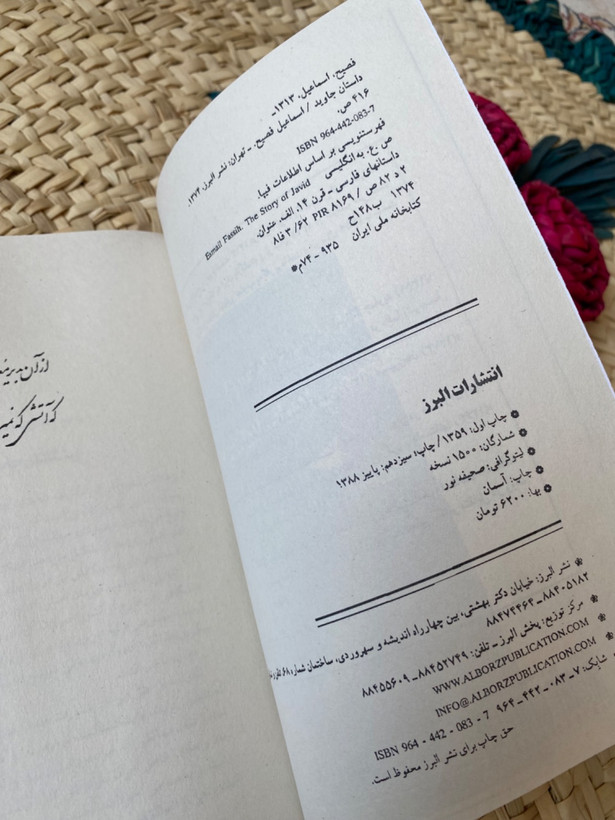 فصیح، اسماعیل، ۱۳۱۳ـ
داستان جاوید / اسماعیل فصیح. ـ تهران: نشر البرز، ۱۳۷۴.
۴۱۶ ص.
ISBN 964-442-083-7
فهرستنویسی بر اساس اطلاعات فیپا.
ص. ع. به انگلیسی Esmail Fassih. The Story of Javid
داستانهای فارسی ـ قرن ۱۴. الف. عنوان.
۲ د ۸۲ ص / PIR ۸۱۶۹ ۳/۶۲ فا۸
۱۳۷۴ ب۱۴۸ح
کتابخانه ملی ایران ۹۳۵ ـ ۷۴م*
انتشارات البرز
چاپ اول: ۱۳۵۹ / چاپ سیزدهم: پاییز ۱۳۸۸
شمارگان: ۱۵۰۰ نسخه
لیتوگرافی: صحیفه نور
چاپ: آسمان
بها: ۶۲۰۰ تومان
نشر البرز: خیابان دکتر بهشتی، بین چهارراه اندیشه و سهروردی، ساختمان شماره ۶۸
۸۸۴۰۵۱۸۲ ـ ۸۸۴۷۴۴۶۴
مرکز توزیع: پخش البرز ـ تلفن: ۸۸۴۵۲۷۴۹ ـ ۸۸۴۵۵۶۰۹
WWW.ALBORZPUBLICATION.COM
INFO@ALBORZPUBLICATION.COM
شابک: ۷ـ ۰۸۳ ـ ۴۴۲ـ ۹۶۴ ISBN 964 - 442 - 083 - 7
حق چاپ برای نشر البرز محفوظ است.
از آن به
که آتشی که